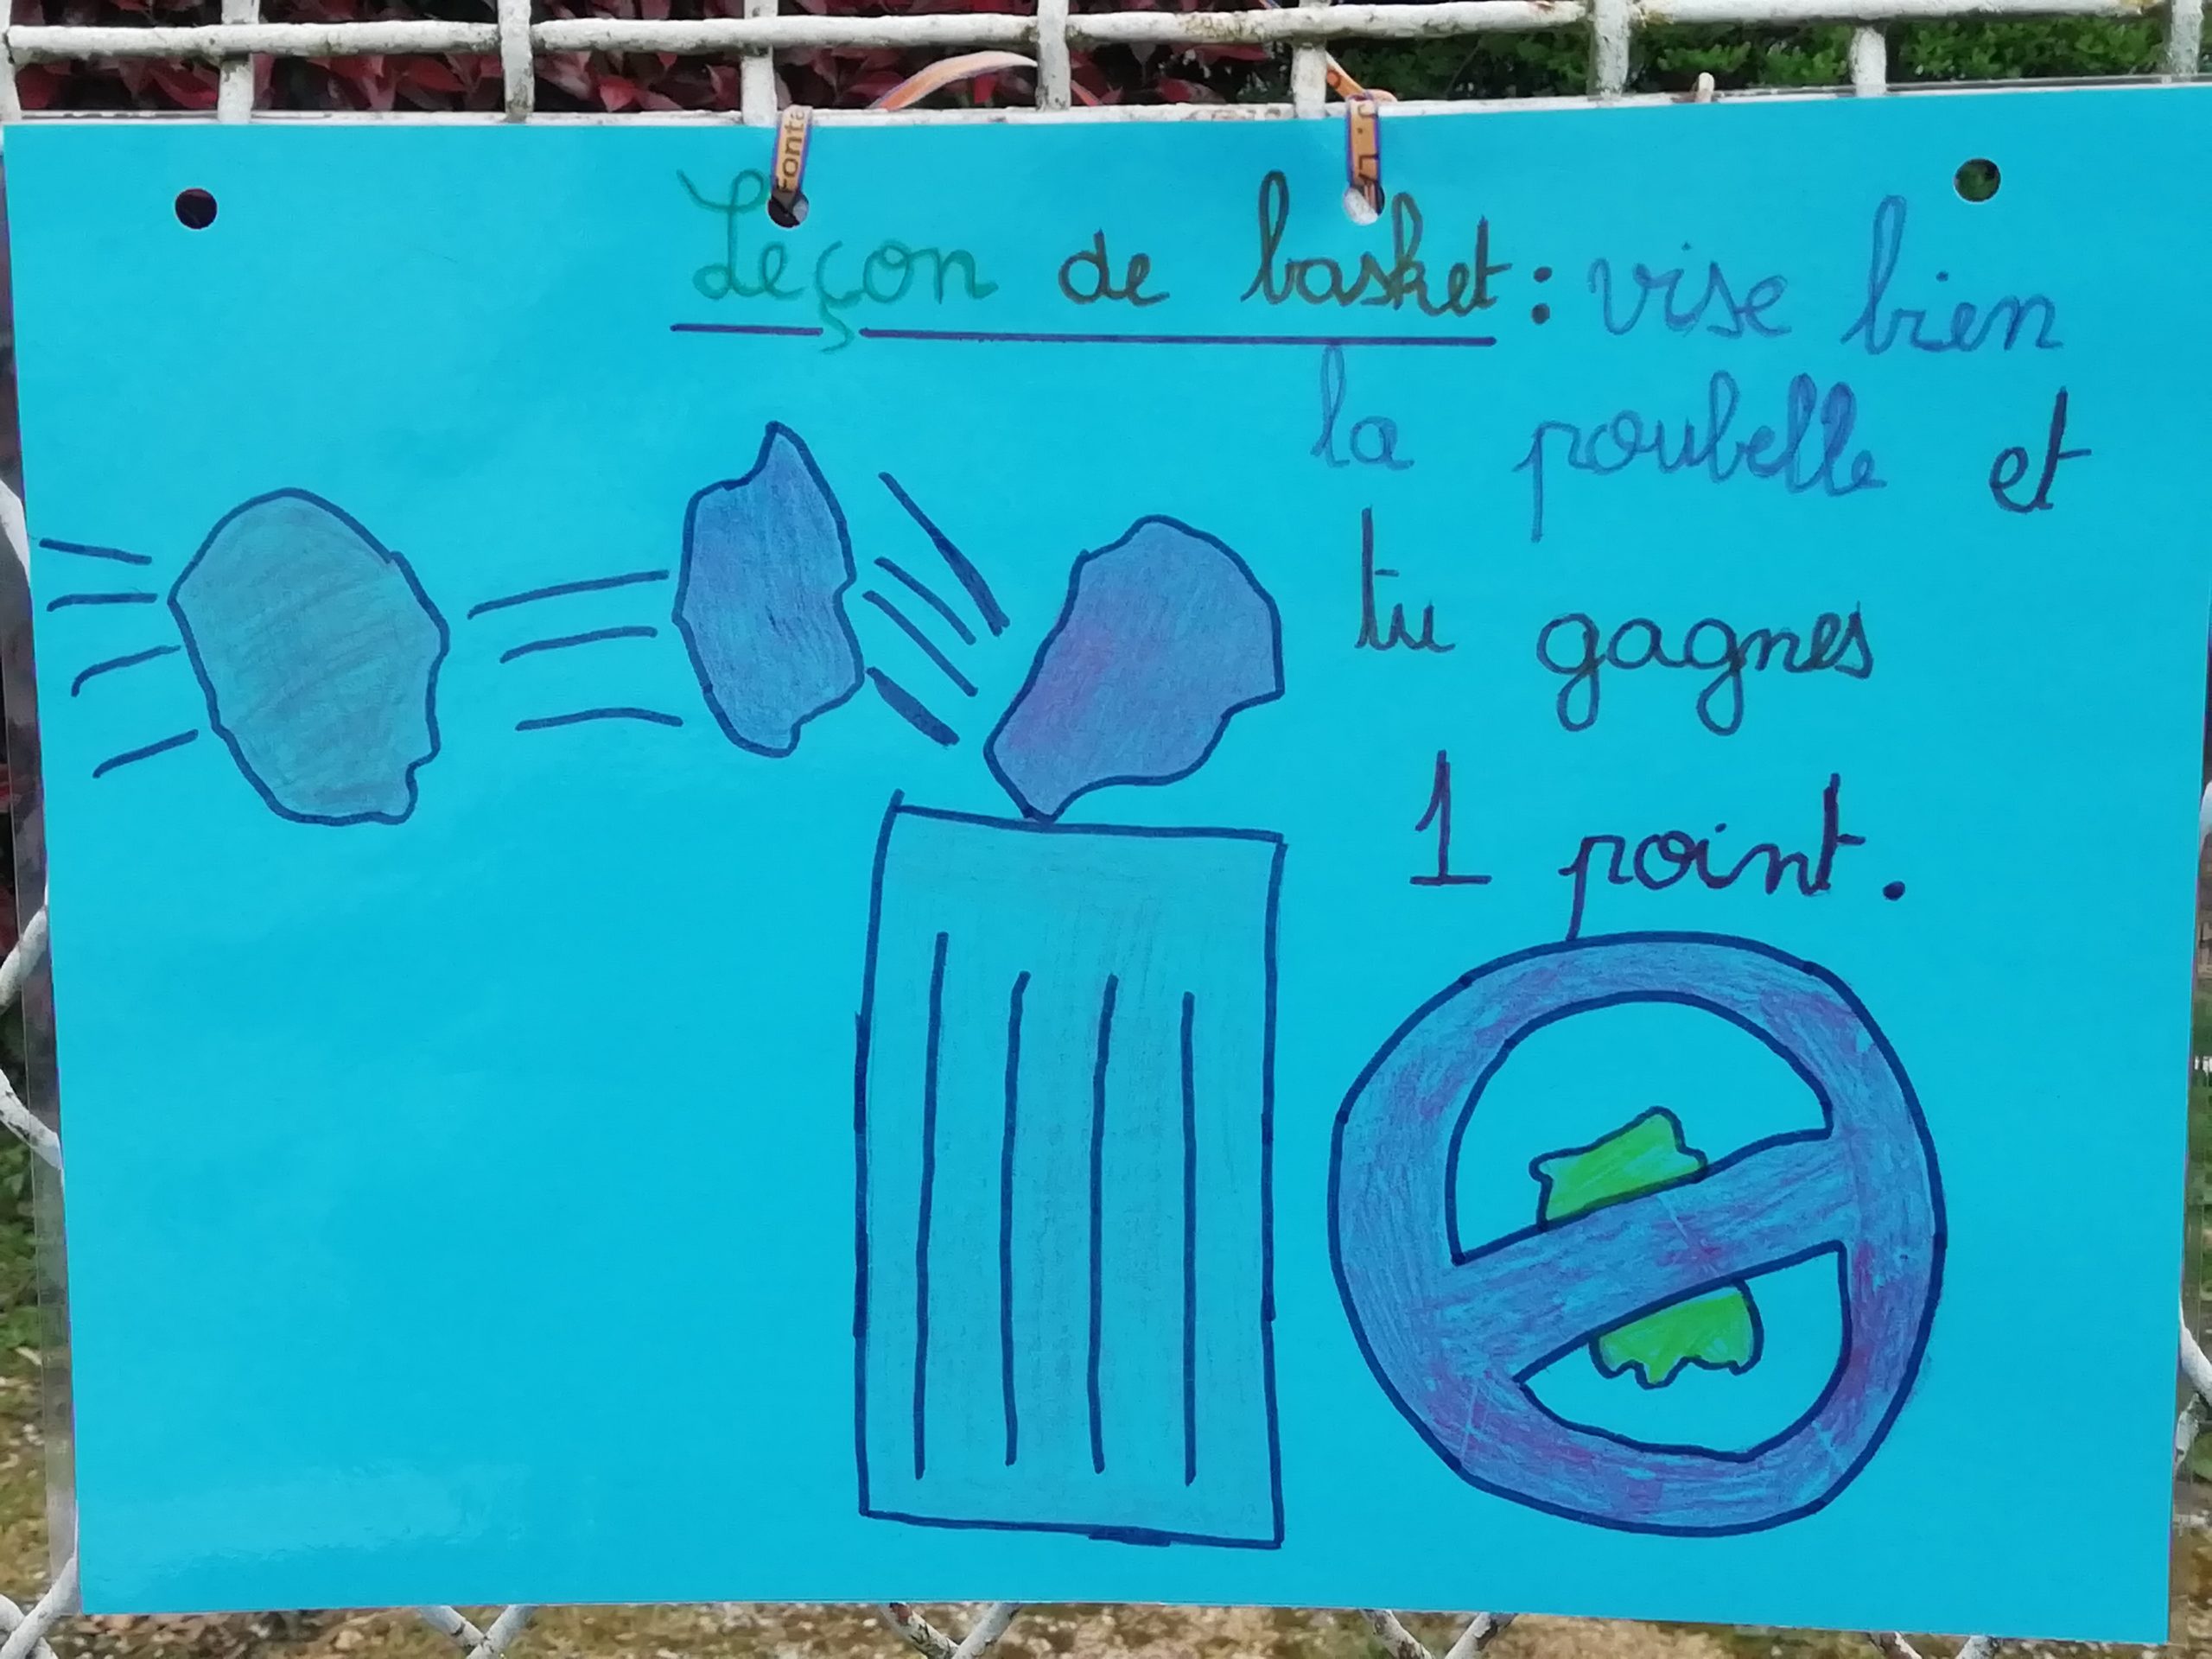 Leçon de basket : vise bien
la poubelle et
tu gagnes
1 point.
Fonta